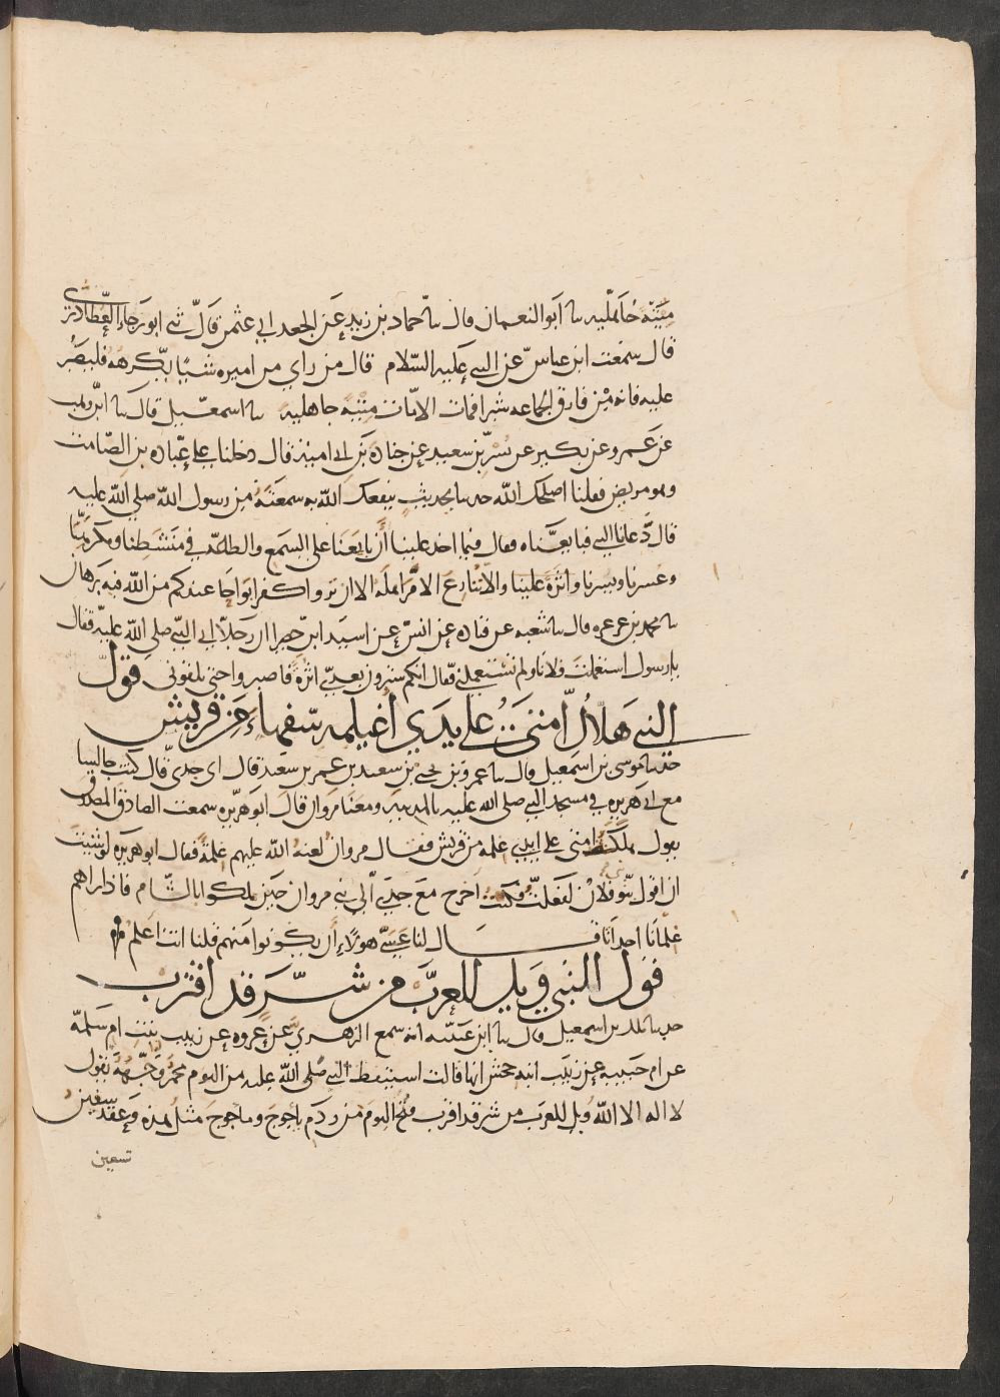 ميتة جاهلية نا أبو النعمان قال نا حماد بن زيد عن الجعد ابي عثمن قال ثني ابو رجاء العطاردي
قال سمعت ابن عباس عن النبي عليه السلام قال من راي من اميره شيئا يكرهه فليصبر
عليه فانه من فارق الجماعه شبرا فمات الا مات ميتة جاهلية نا اسمعيل قال نا ابن وهب
عن عمرو عن بكير عن بسر بن سعيد عن جناده بن ابى امية قال دخلنا على عباده بن الصامت
وهو مريض فقلنا اصلحك الله حدثنا بحديث ينفعك الله به سمعته من رسول الله صلى الله عليه
قال دعانا النبي فبايعناه وقال فيما اخذ علينا أن بايعنا على السمع والطاعة في منشطنا ومكرهنا
وعسرنا ويسرنا واثرة علينا وألا ننازع الامر امله الا ان تروا كفرا بواحا عندكم من الله فيه برهان
نا محمد بن عرعره قال نا شعبه عن قتاده عن انس عن اسيد ابن حضير ان رجلا اتى النبي صلى الله عليه فقال
يا رسول استعملت فلانا ولم تستعملني فقال انكم سترون بعدي اثرة فاصبروا حتى تلقوني قول
النبي هلاك أمتي على يدي أغيلمه سفهاء من قريش
حدثنا موسى بن اسمعيل قال نا عمرو بن يحيى بن سعيد بن عمر بن سعيد قال اى جدى قال كنت جالسا
مع ابى هريره في مسجد النبي صلى الله عليه بالمدينة ومعنا مروان قال ابو هريره سمعت الصادق المصدوق
يقول هلكة امتى على ايدي غلمه من قريش فقال مروان لعنة الله عليهم غلمة فقال ابو هريره لو شئت
ان اقول بنو فلان لفعلت فكنت اخرج مع جدي الى بني مروان حين ملكوا بالشام فاذا راهم
غلمانا احداثا قال لنا عسى هؤلاء أن يكونوا منهم قلنا انت اعلم
قول النبي ويل للعرب من شر قد اقترب
حدثنا ملد بن اسمعيل قال نا ابن عيينه انه سمع الزهري عن عروه عن زينب بنت ام سلمة
عن ام حبيبه عن زينب ابنه جحش انها قالت استيقظ النبي صلى الله عليه من النوم محمر وجهه يقول
لا اله الا الله ويل للعرب من شر قد اقترب فتح اليوم من ردم ياجوج وماجوج مثل هذه وعقد سفين
تسعين